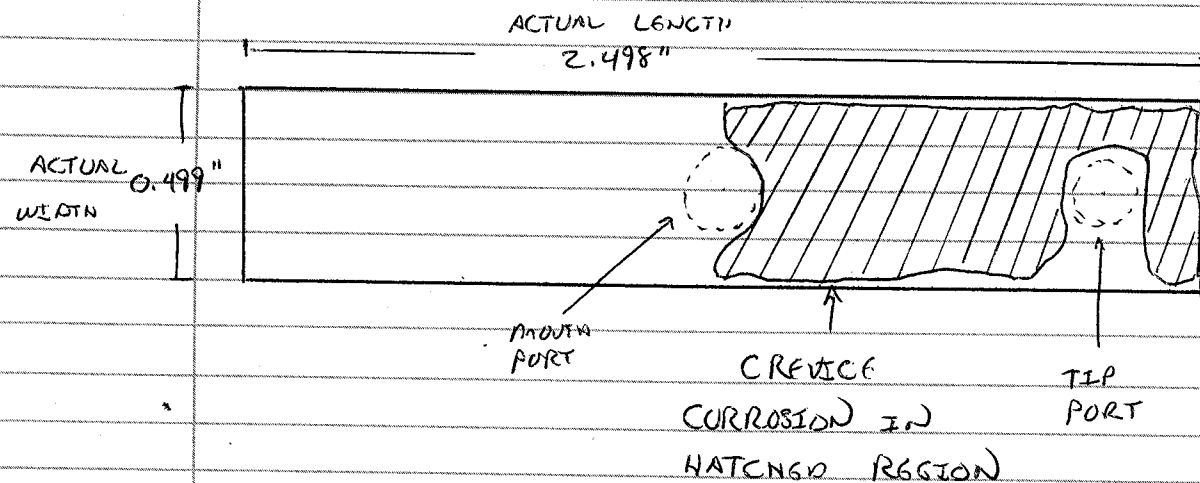 ACTUAL LENGTH
2.498"
ACTUAL 0.499"
WIDTH
MOUTH
PORT
CREVICE
CORROSION IN
HATCHED REGION
TIP
PORT